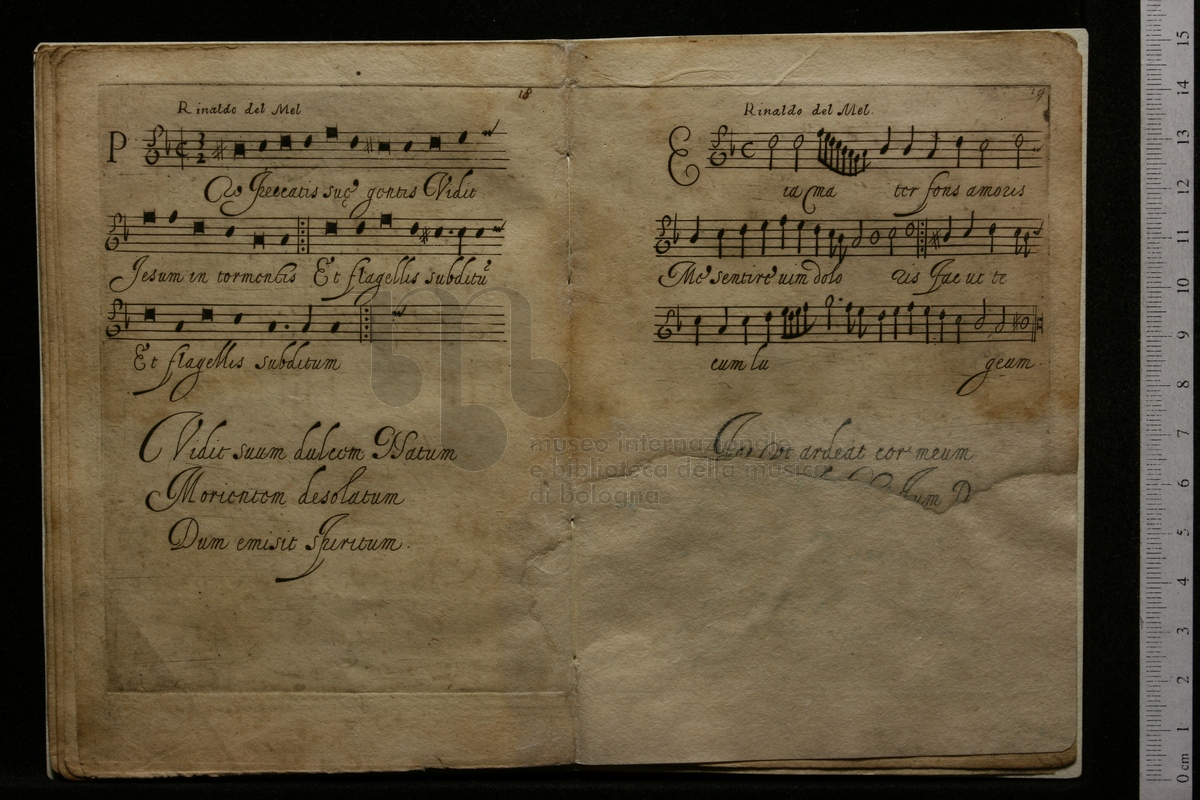 18
Rinaldo del Mel
P
Ro Peccatis suę gentis Vidit
Jesum in tormentis Et flagellis subditū
Et flagellis subditum
Vidit suum dulcem Natum
Morientem desolatum
Dum emisit spiritum.
19
Rinaldo del Mel.
E
ia ma ter fons amoris
Me sentire uim dolo ris Fac ut te
cum lu geam.
ardeat cor meum
um D
museo internazionale
e biblioteca della musica
di bologna
0 cm 1 2 3 4 5 6 7 8 9 10 11 12 13 14 15